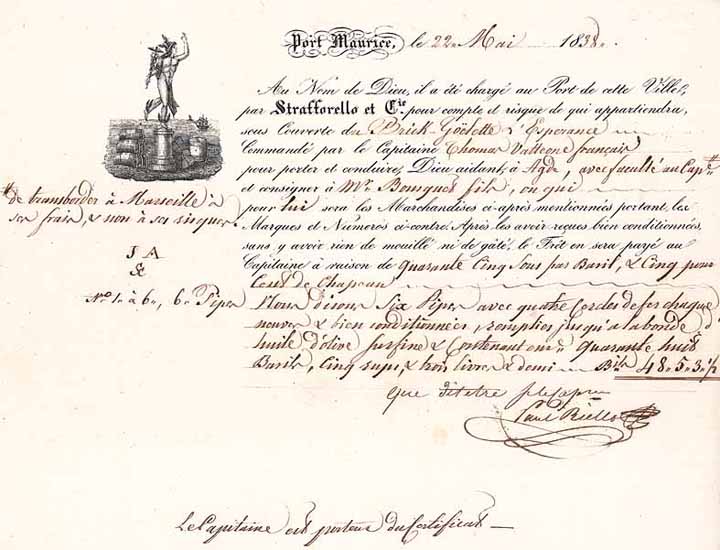 Port Maurice, le 22 Mai 1838.
Au Nom de Dieu, il a été chargé au Port de cette Ville,
par Strafforello et Cie pour compte et risque de qui appartiendra,
sous Couverte du Brick-Goëlette L'Esperance
Commandé par le Capitaine Thomas Vatteone français
pour porter et conduire, Dieu aidant, à Agde, avec faculté au Capne #
et consigner à Mr Bousquet fils, ou qui
# de transborder à Marseille à
ses frais, & non à ses risques
pour lui sera les Marchandises ci-après mentionnées portant, les
Marques et Numéros ci-contre. Après les avoir reçues bien conditionnées,
sans y avoir rien de mouillé ni de gâté, le Frêt en sera payé au
Capitaine à raison de quarante Cinq Sous par Baril, & Cinq pour
Cent de Chapeau
J A
&
Nos 1 à 6, 6 Pipes
Nous disons Six Pipes avec quatre Cordes de fer chaque
neuves & bien conditionnées, remplies jusqu'à la bonde d'
huile d'olive surfine & Contenant quarante huit
Barils, Cinq & trois livres & demi Bils 48.5.3 1/2
que dit être
Paul
Le Capitaine est porteur du Certificat